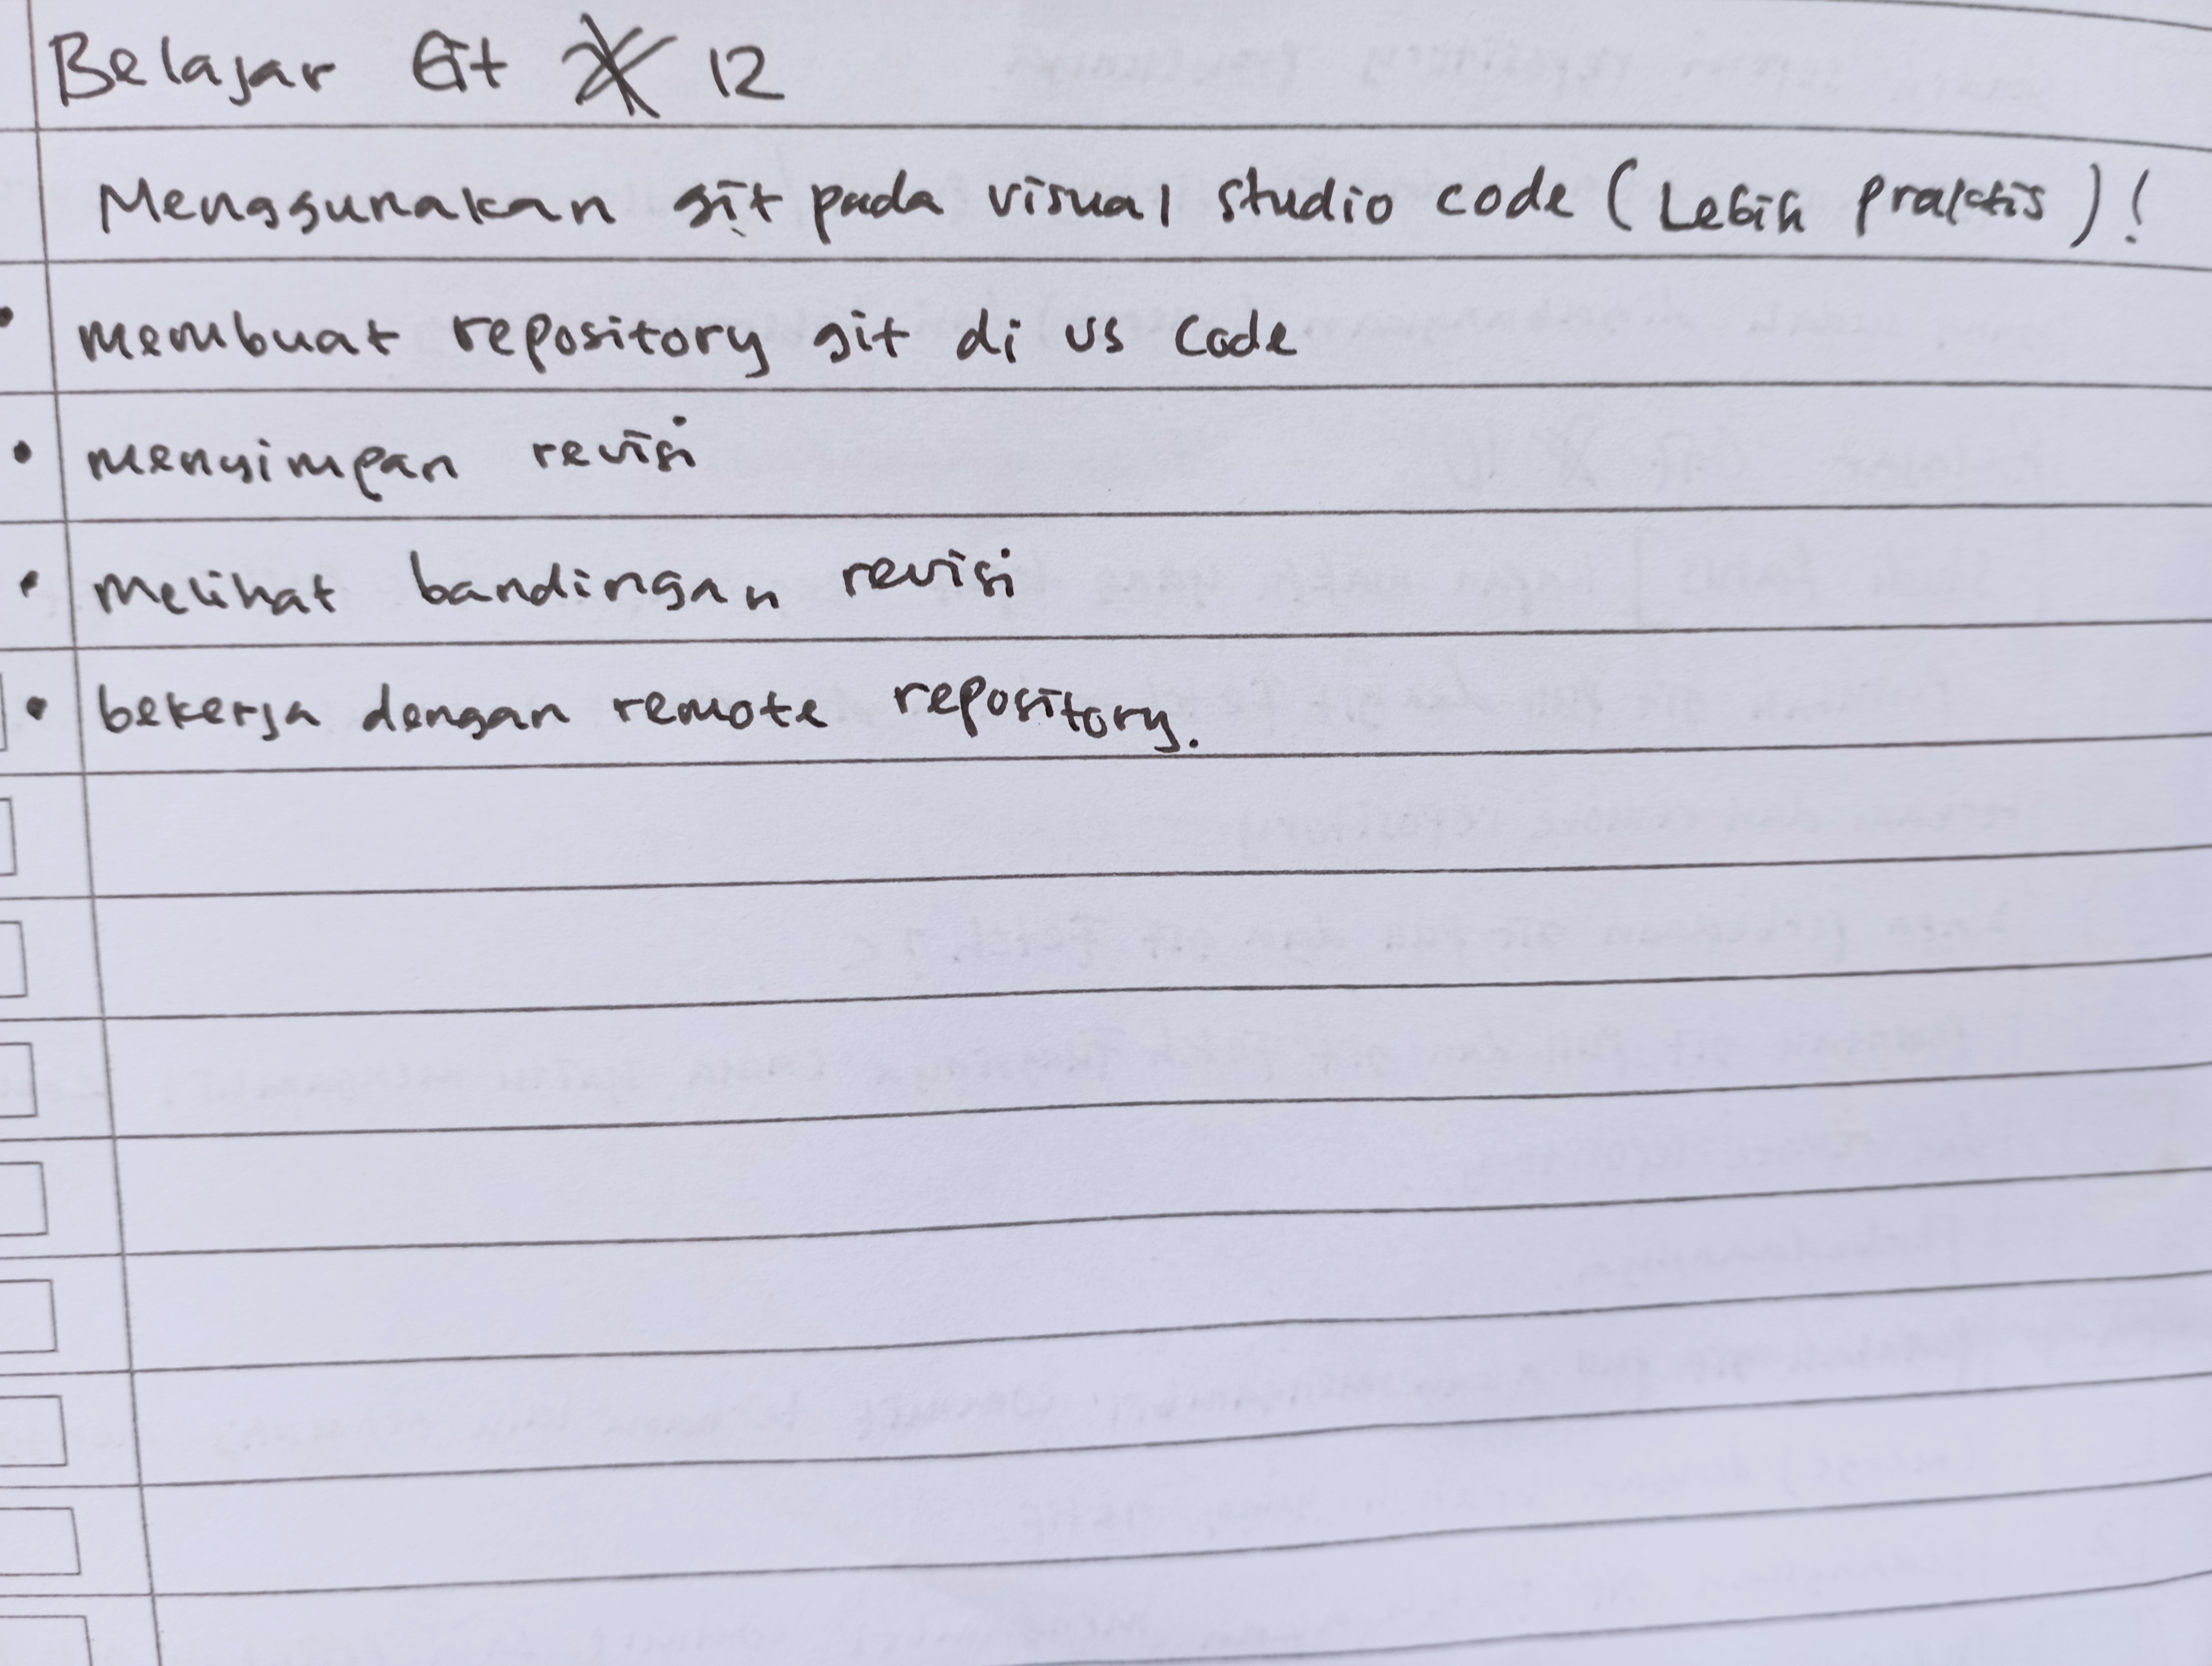 Belajar Git # 12
Menggunakan git pada visual studio code (Lebih Praktis)!
• membuat repository git di vs code
• menyimpan revisi
• melihat bandingan revisi
• bekerja dengan remote repository.